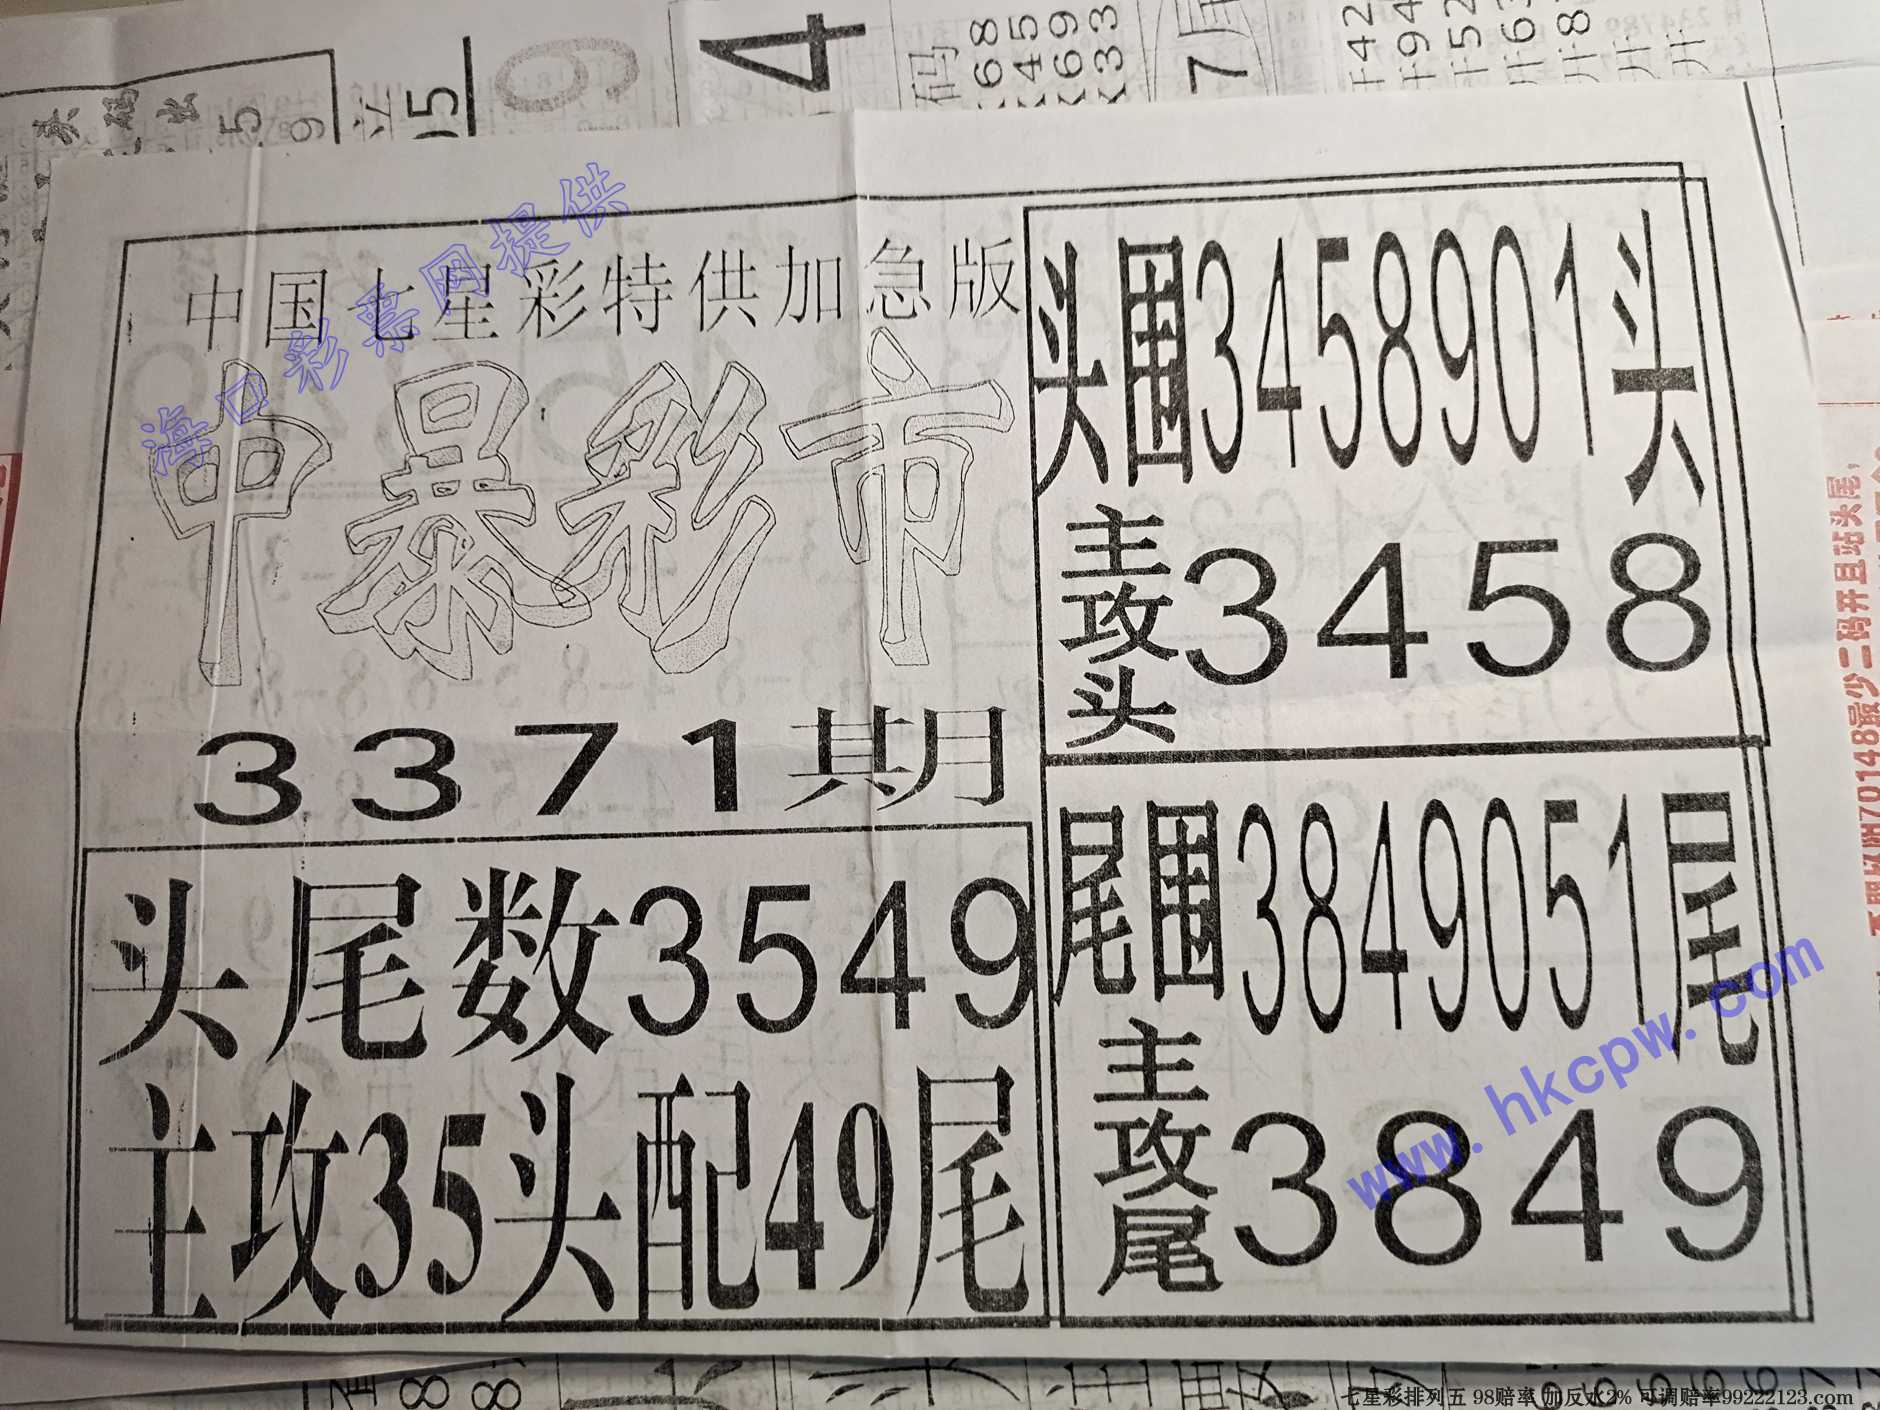 中国七星彩特供加急版
中暴彩市
3371期
头尾数3549
主攻35头配49尾
头围3458901头
主攻头3458
尾围3849051尾
主攻尾3849
海口彩票网提供
www.hkcpw.com
最少二码开且站头尾,
七星彩排列五 98赔率 加反水2% 可调赔率99222123.com